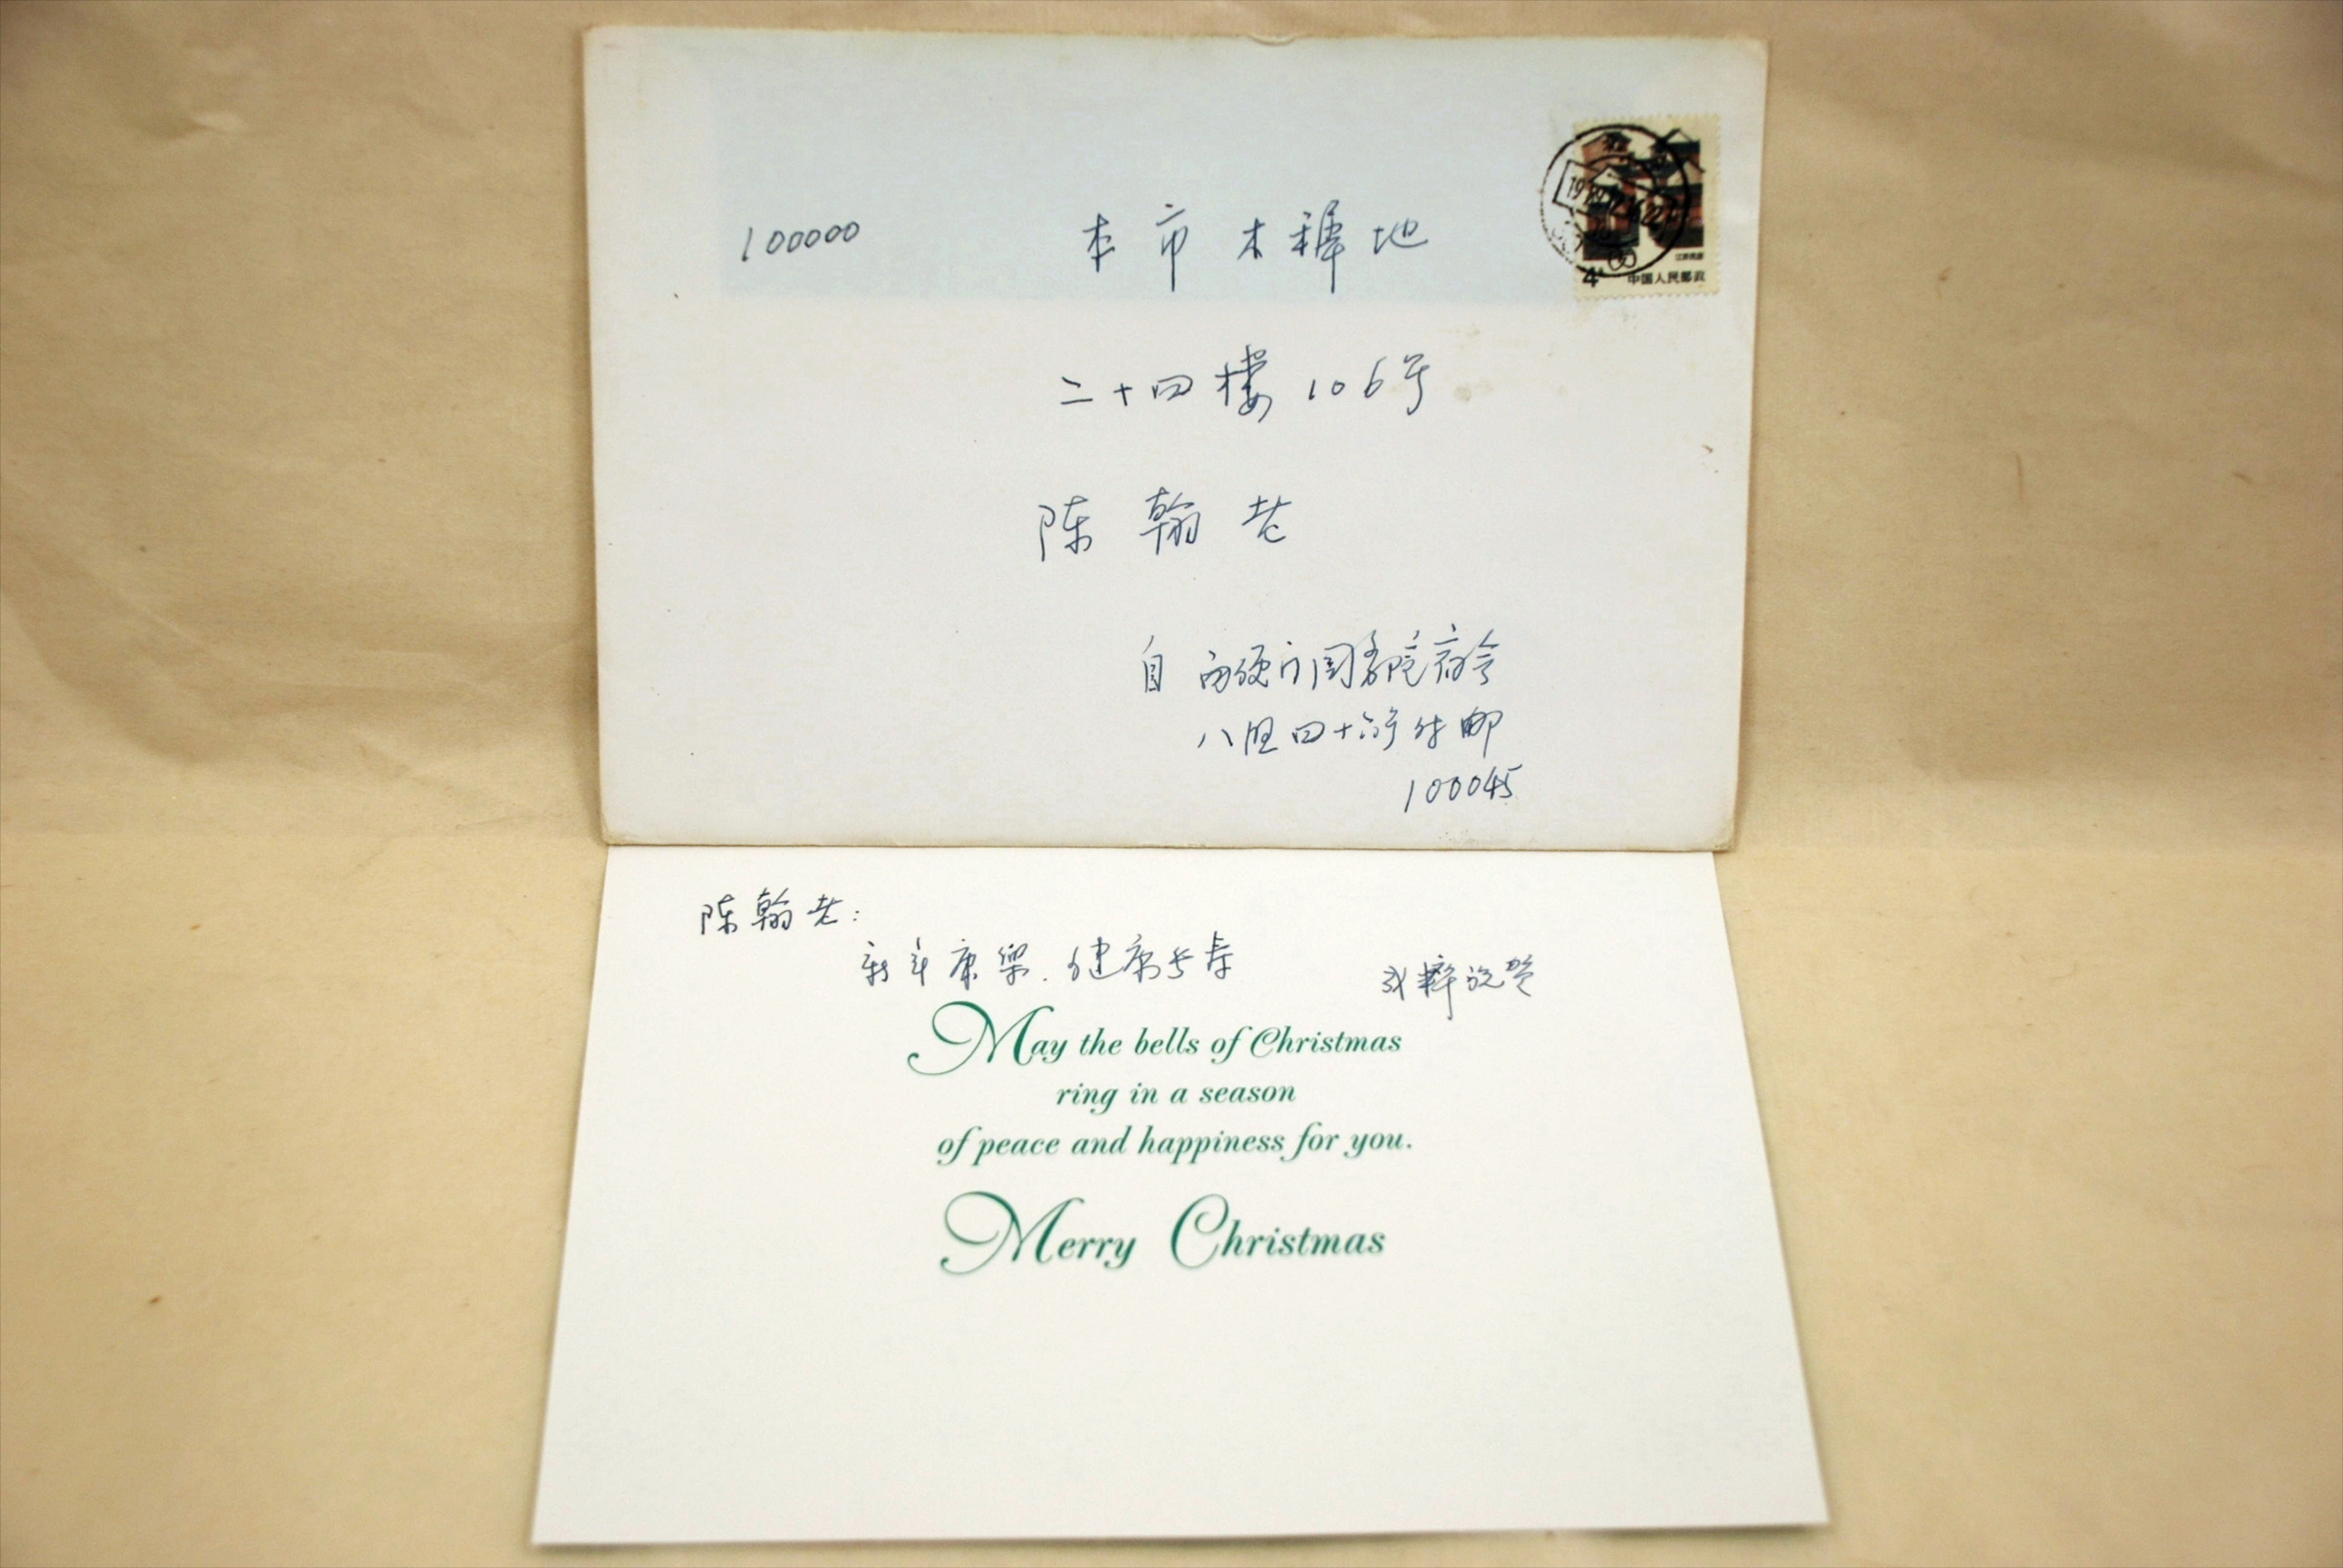 100000
本市木樨地
4分
江苏民居
中国人民邮政
二十四楼 106号
陈翰老
自 西便门国务院宿舍
八区四十六号 付邮
100045
陈翰老:
新年康乐.健康长寿
祝贺
May the bells of Christmas
ring in a season
of peace and happiness for you.
Merry Christmas